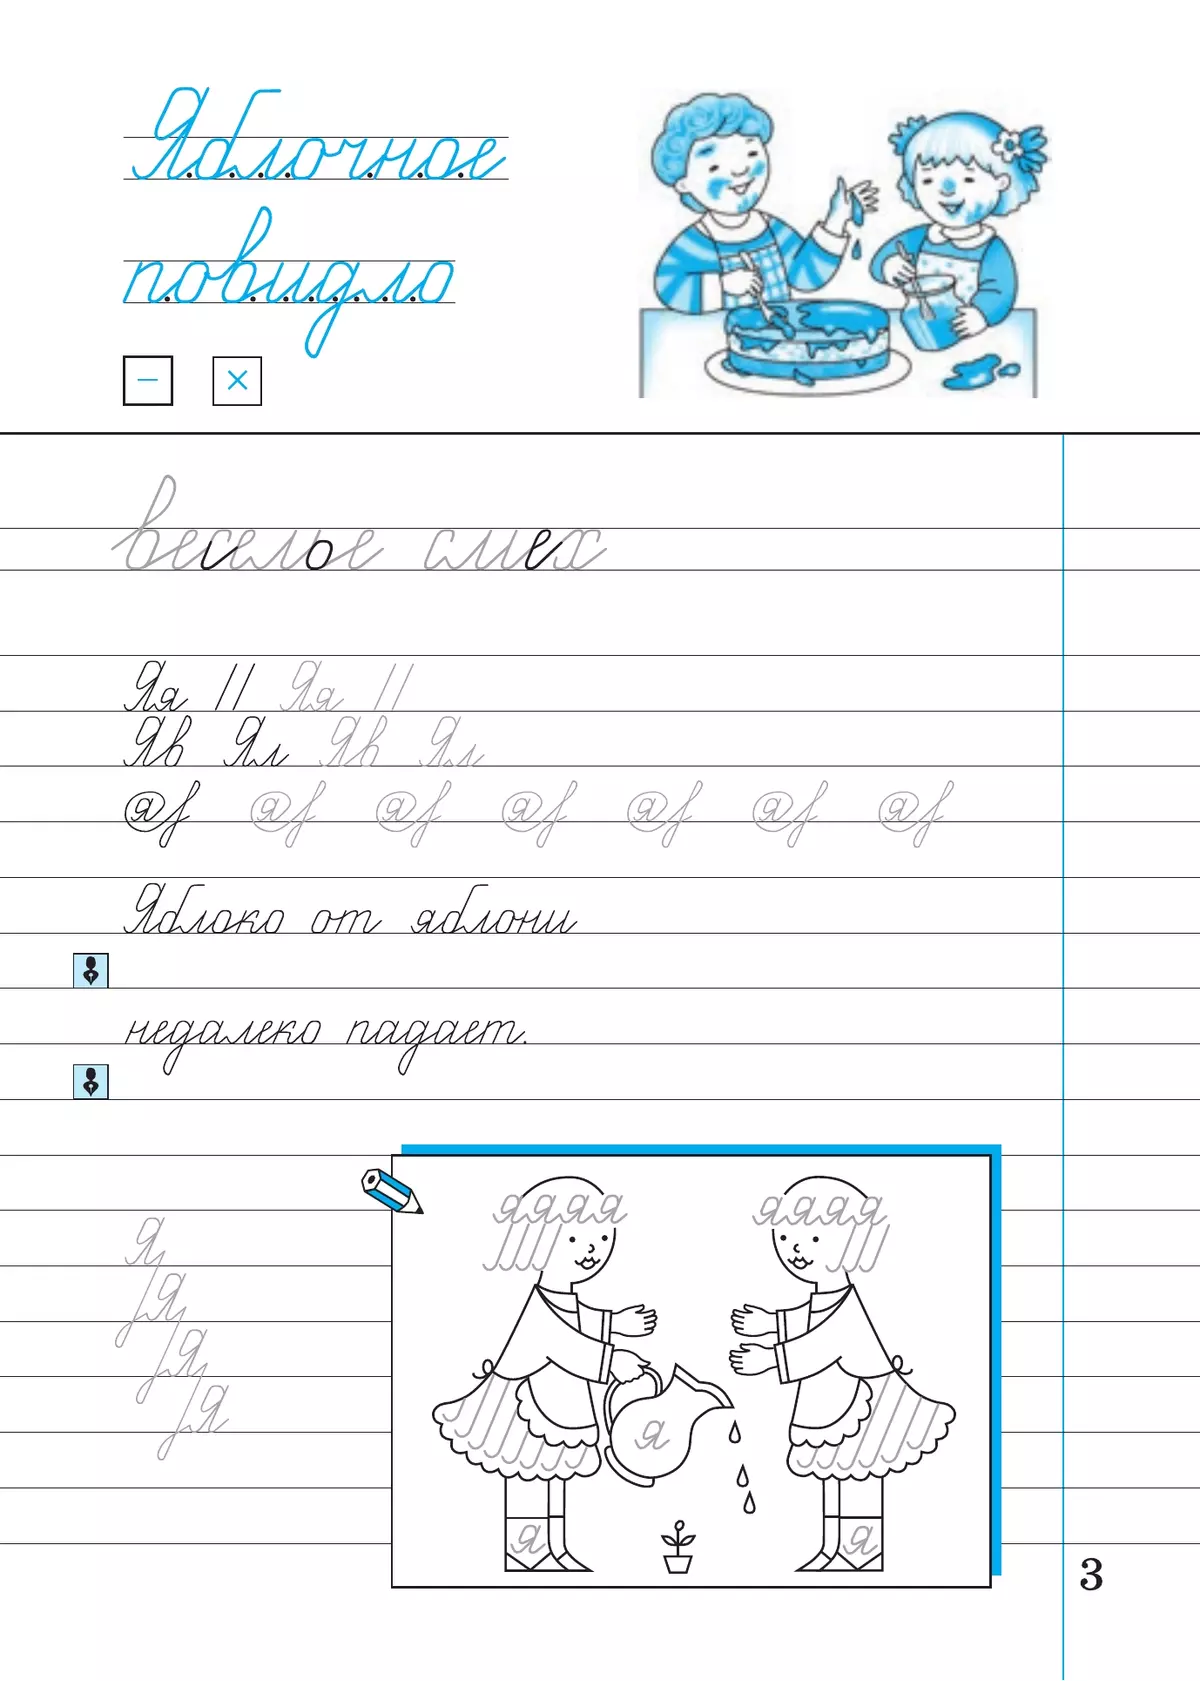 Яблочное
повидло
веселье смех
Яя // Яя //
Яв Ял Яв Ял
Яблоко от яблони
недалеко падает.
яяяя яяяя
Я
Я
Я
Я
я
я я
3